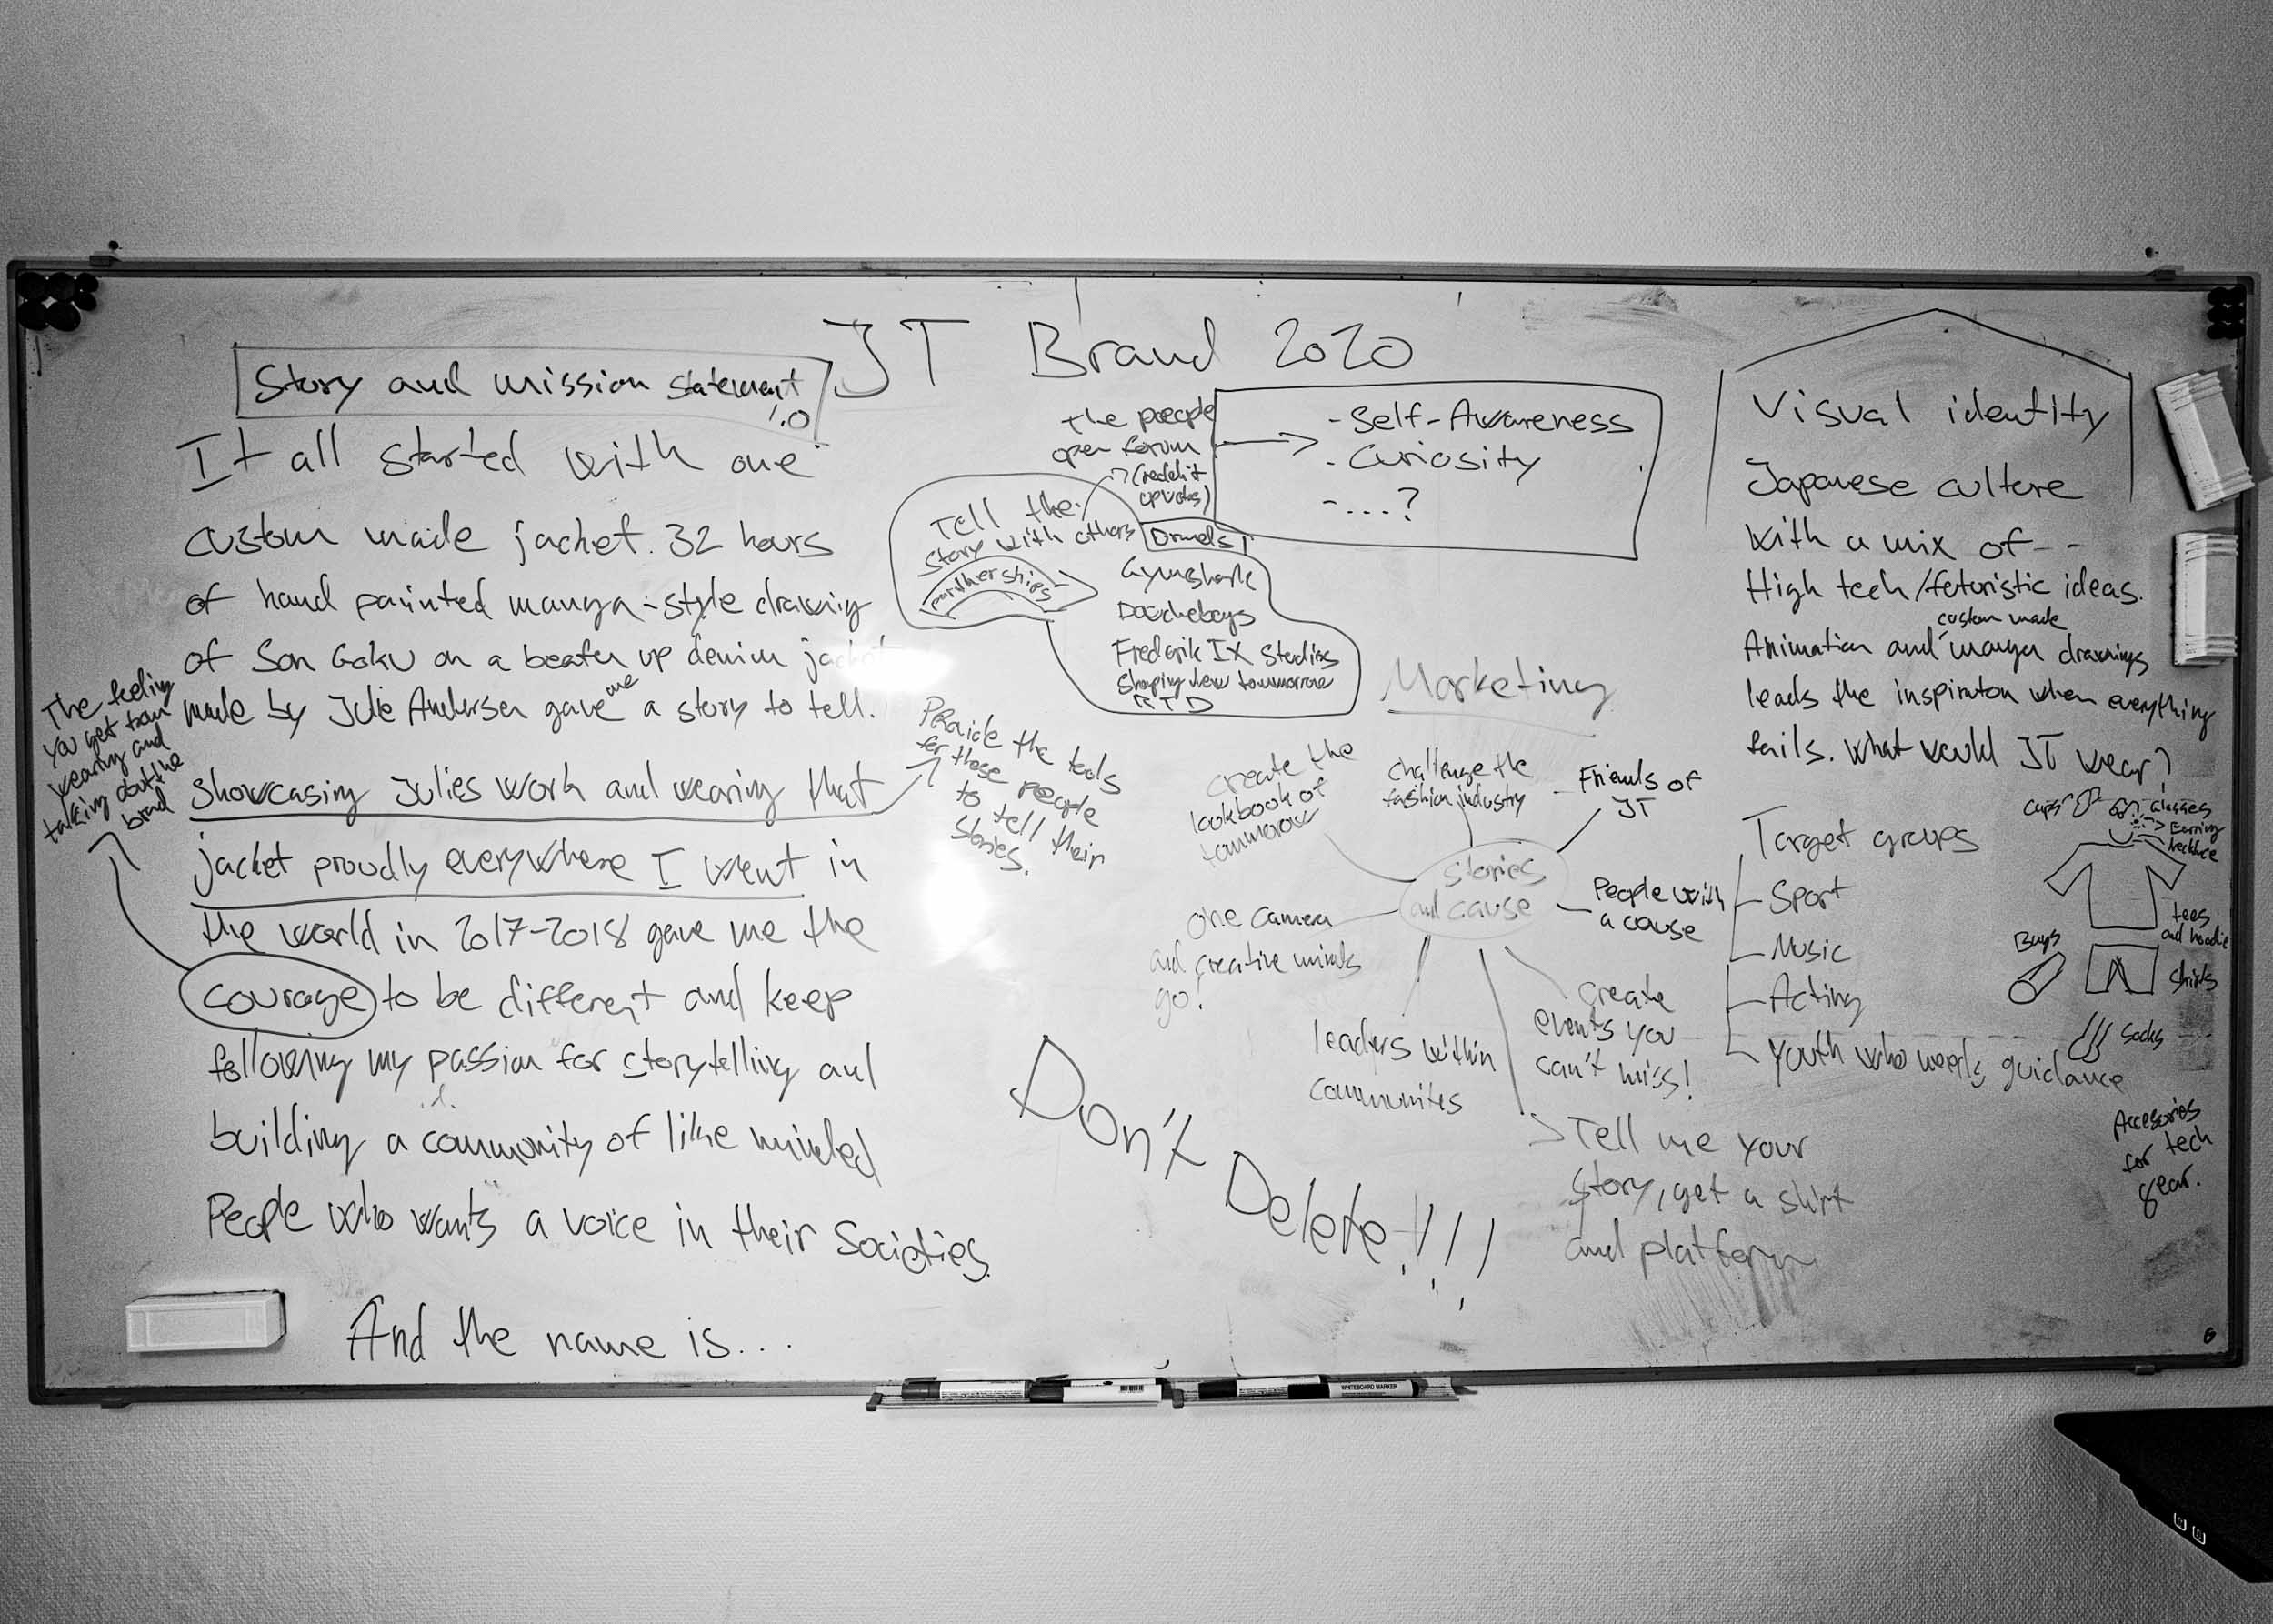 JT Brand 2020
Story and mission statement
1.0
It all started with one
custom made jacket. 32 hours
of hand painted manga-style drawing
of Son Goku on a beaten up denim
made by Julie Andersen gave me a story to tell.
showcasing Julies work and wearing that
jacket proudly everywhere I went in
the world in 2017-2018 gave me the
courage to be different and keep
following my passion for storytelling and
building a community of like minded
People who wants a voice in their Societies.
And the name is...
The feeling
you get from
wearing and
talking about the
brand
Provide the tools
for those people
to tell their
stories.
The people
open forum
(reddit
Tell the
story with others
partnerships
Gymshark
Frederik IX Studios
Shaping New tommorrow
- Self-Awareness
- Curiosity
- ...?
Marketing
Create the
lookbook of
tommorow
challenge the
fashion industry
Friends of
JT
Stories
and cause
People with
a cause
one camera
and creative minds
go!
leaders within
communities
create
events you
can't miss!
Tell me your
story, get a shirt
and platform
Don't Delete!!!
Visual identity
Japanese culture
with a mix of --
High tech/feturistic ideas.
custom made
Animation and manga drawings
leads the inspiraton when everything
fails. What would JT wear?
Target groups
Sport
Music
Acting
Youth who needs guidance
Caps
Glasses
Earring
Necklace
tees
and hoodie
Bags
Socks
Accesories
for tech
gear.
WHITEBOARD MARKER